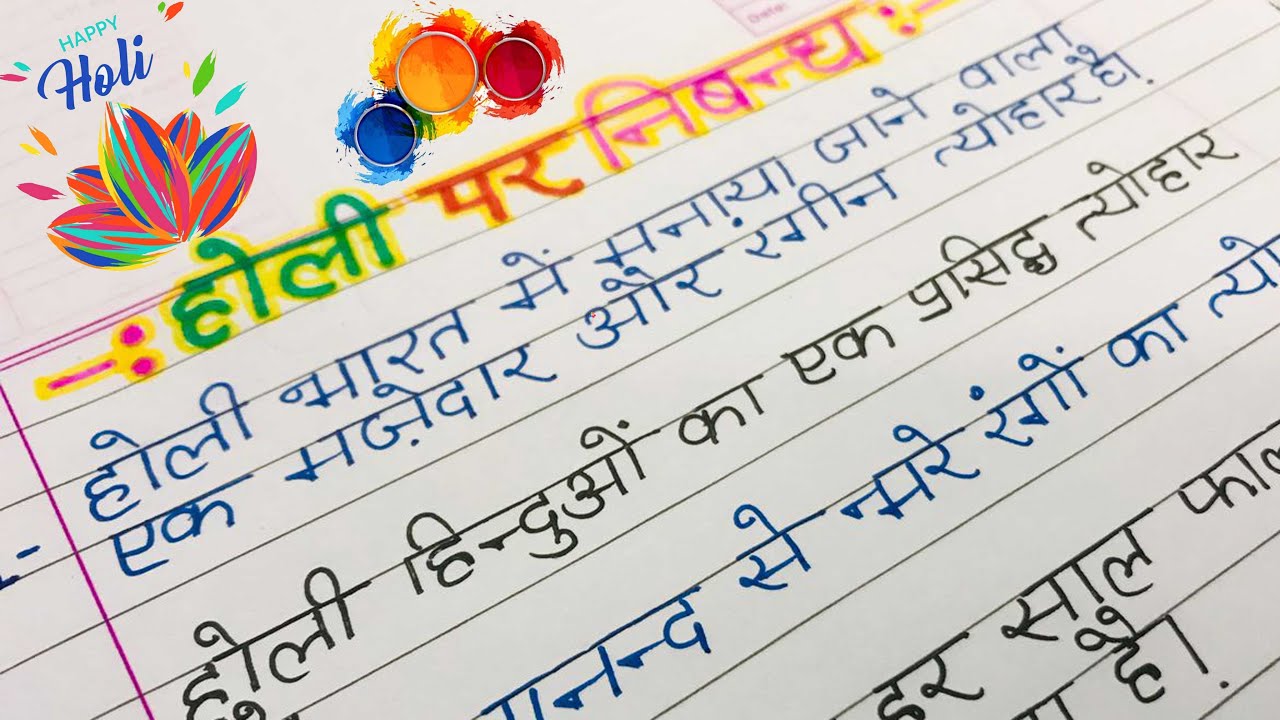 HAPPY
Holi
Date:
-: होली पर निबन्ध :-
होली भारत में मनाया जाने वाला
एक मज़ेदार और रंगीन त्योहार है।
होली हिन्दुओं का एक प्रसिद्ध त्योहार
से भरे रंगों का
हर साल
है।